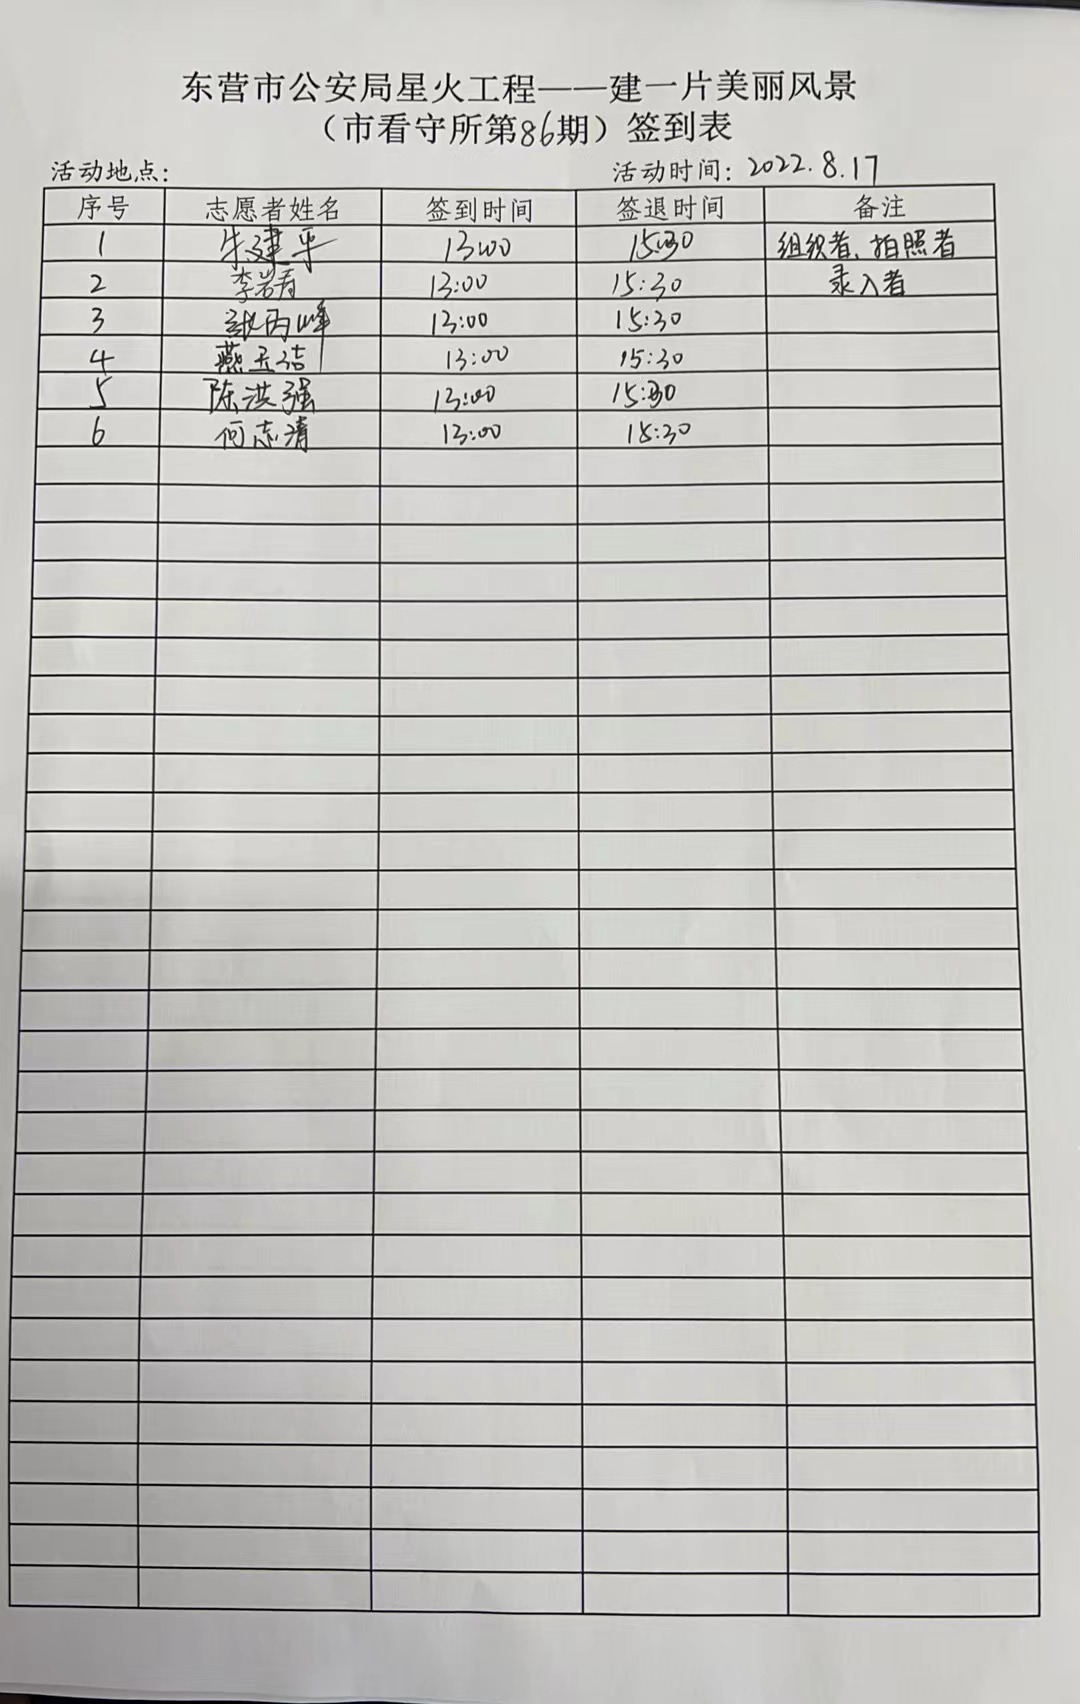 东营市公安局星火工程——建一片美丽风景
（市看守所第86期）签到表
活动地点： 活动时间：2022.8.17
序号 志愿者姓名 签到时间 签退时间 备注
1 牛建平 13:00 15:30 组织者、拍照者
2 李岩寿 13:00 15:30 录入者
3 丙峰 13:00 15:30
4 燕玉洁 13:00 15:30
5 陈洪强 13:00 15:30
6 何志清 13:00 15:30